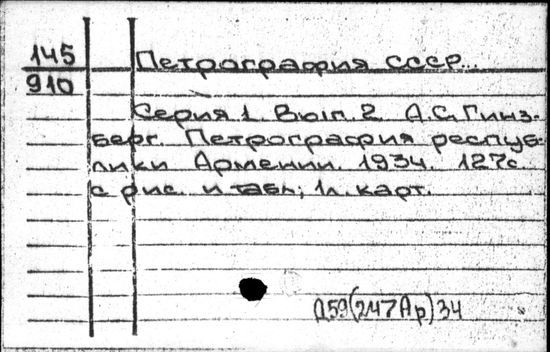 145
910
Петрография СССР...
Серия 1. Вып. 2. А.С. Гинз-
берг. Петрография респуб-
лики Армении. 1934. 127с.
с рис. и табл; 1л. карт.
Д59(2М7Ар)34